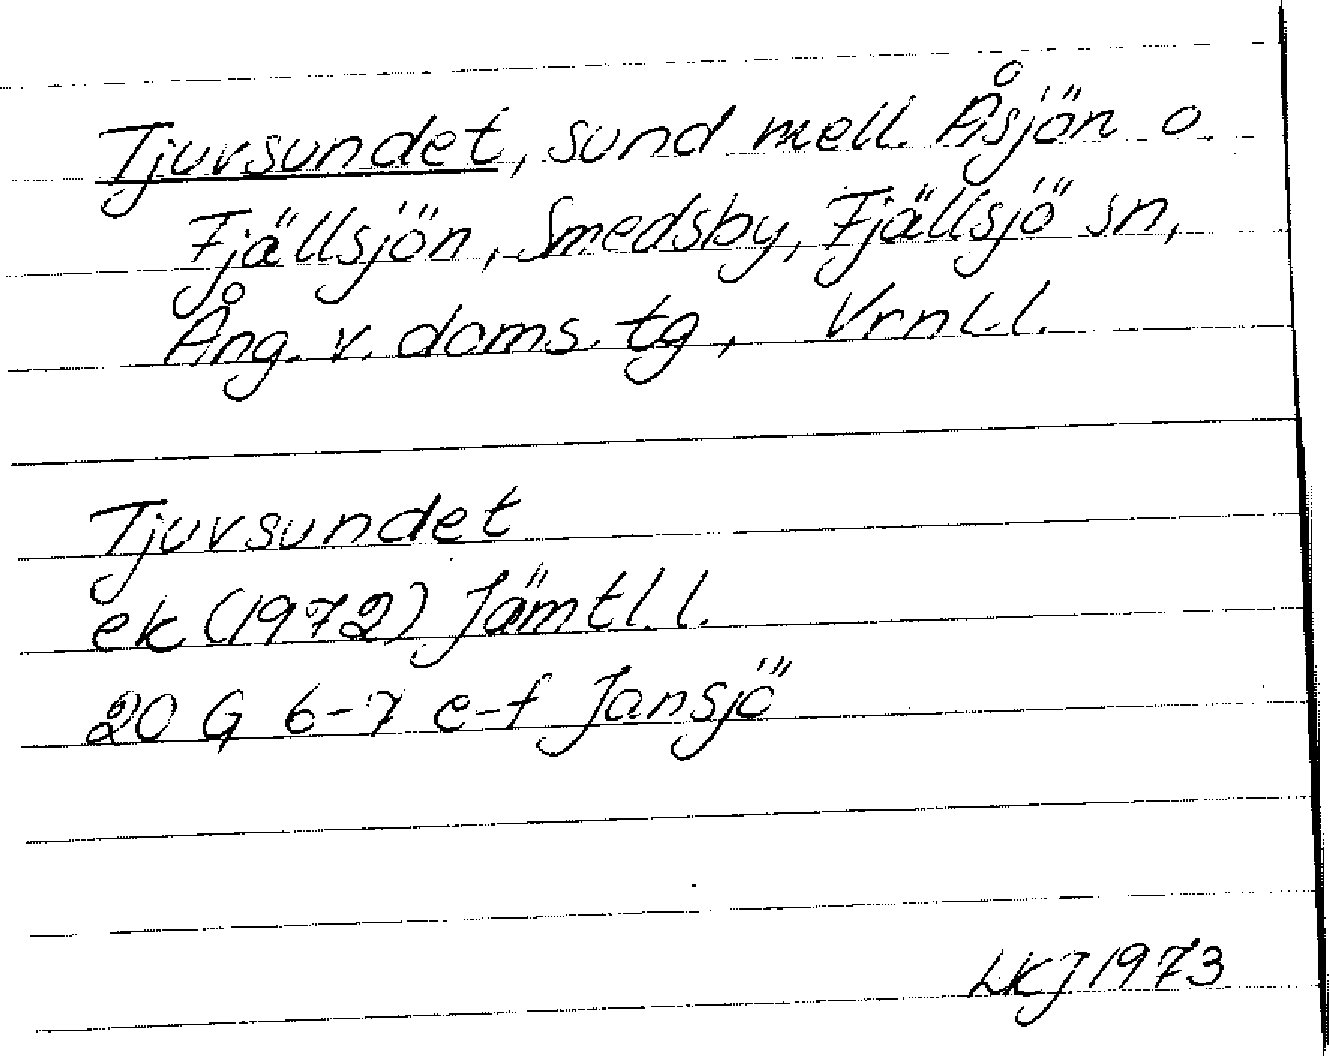 Tjuvsundet, sund mell. Åsjön o.
Fjällsjön, Smedsby, Fjällsjö sn,
Ång. v. doms. tg, Vrnl.l.
Tjuvsundet
ek (1972) Jämtl.l.
20 G 6-7 e-f Jansjö
LKJ 1973